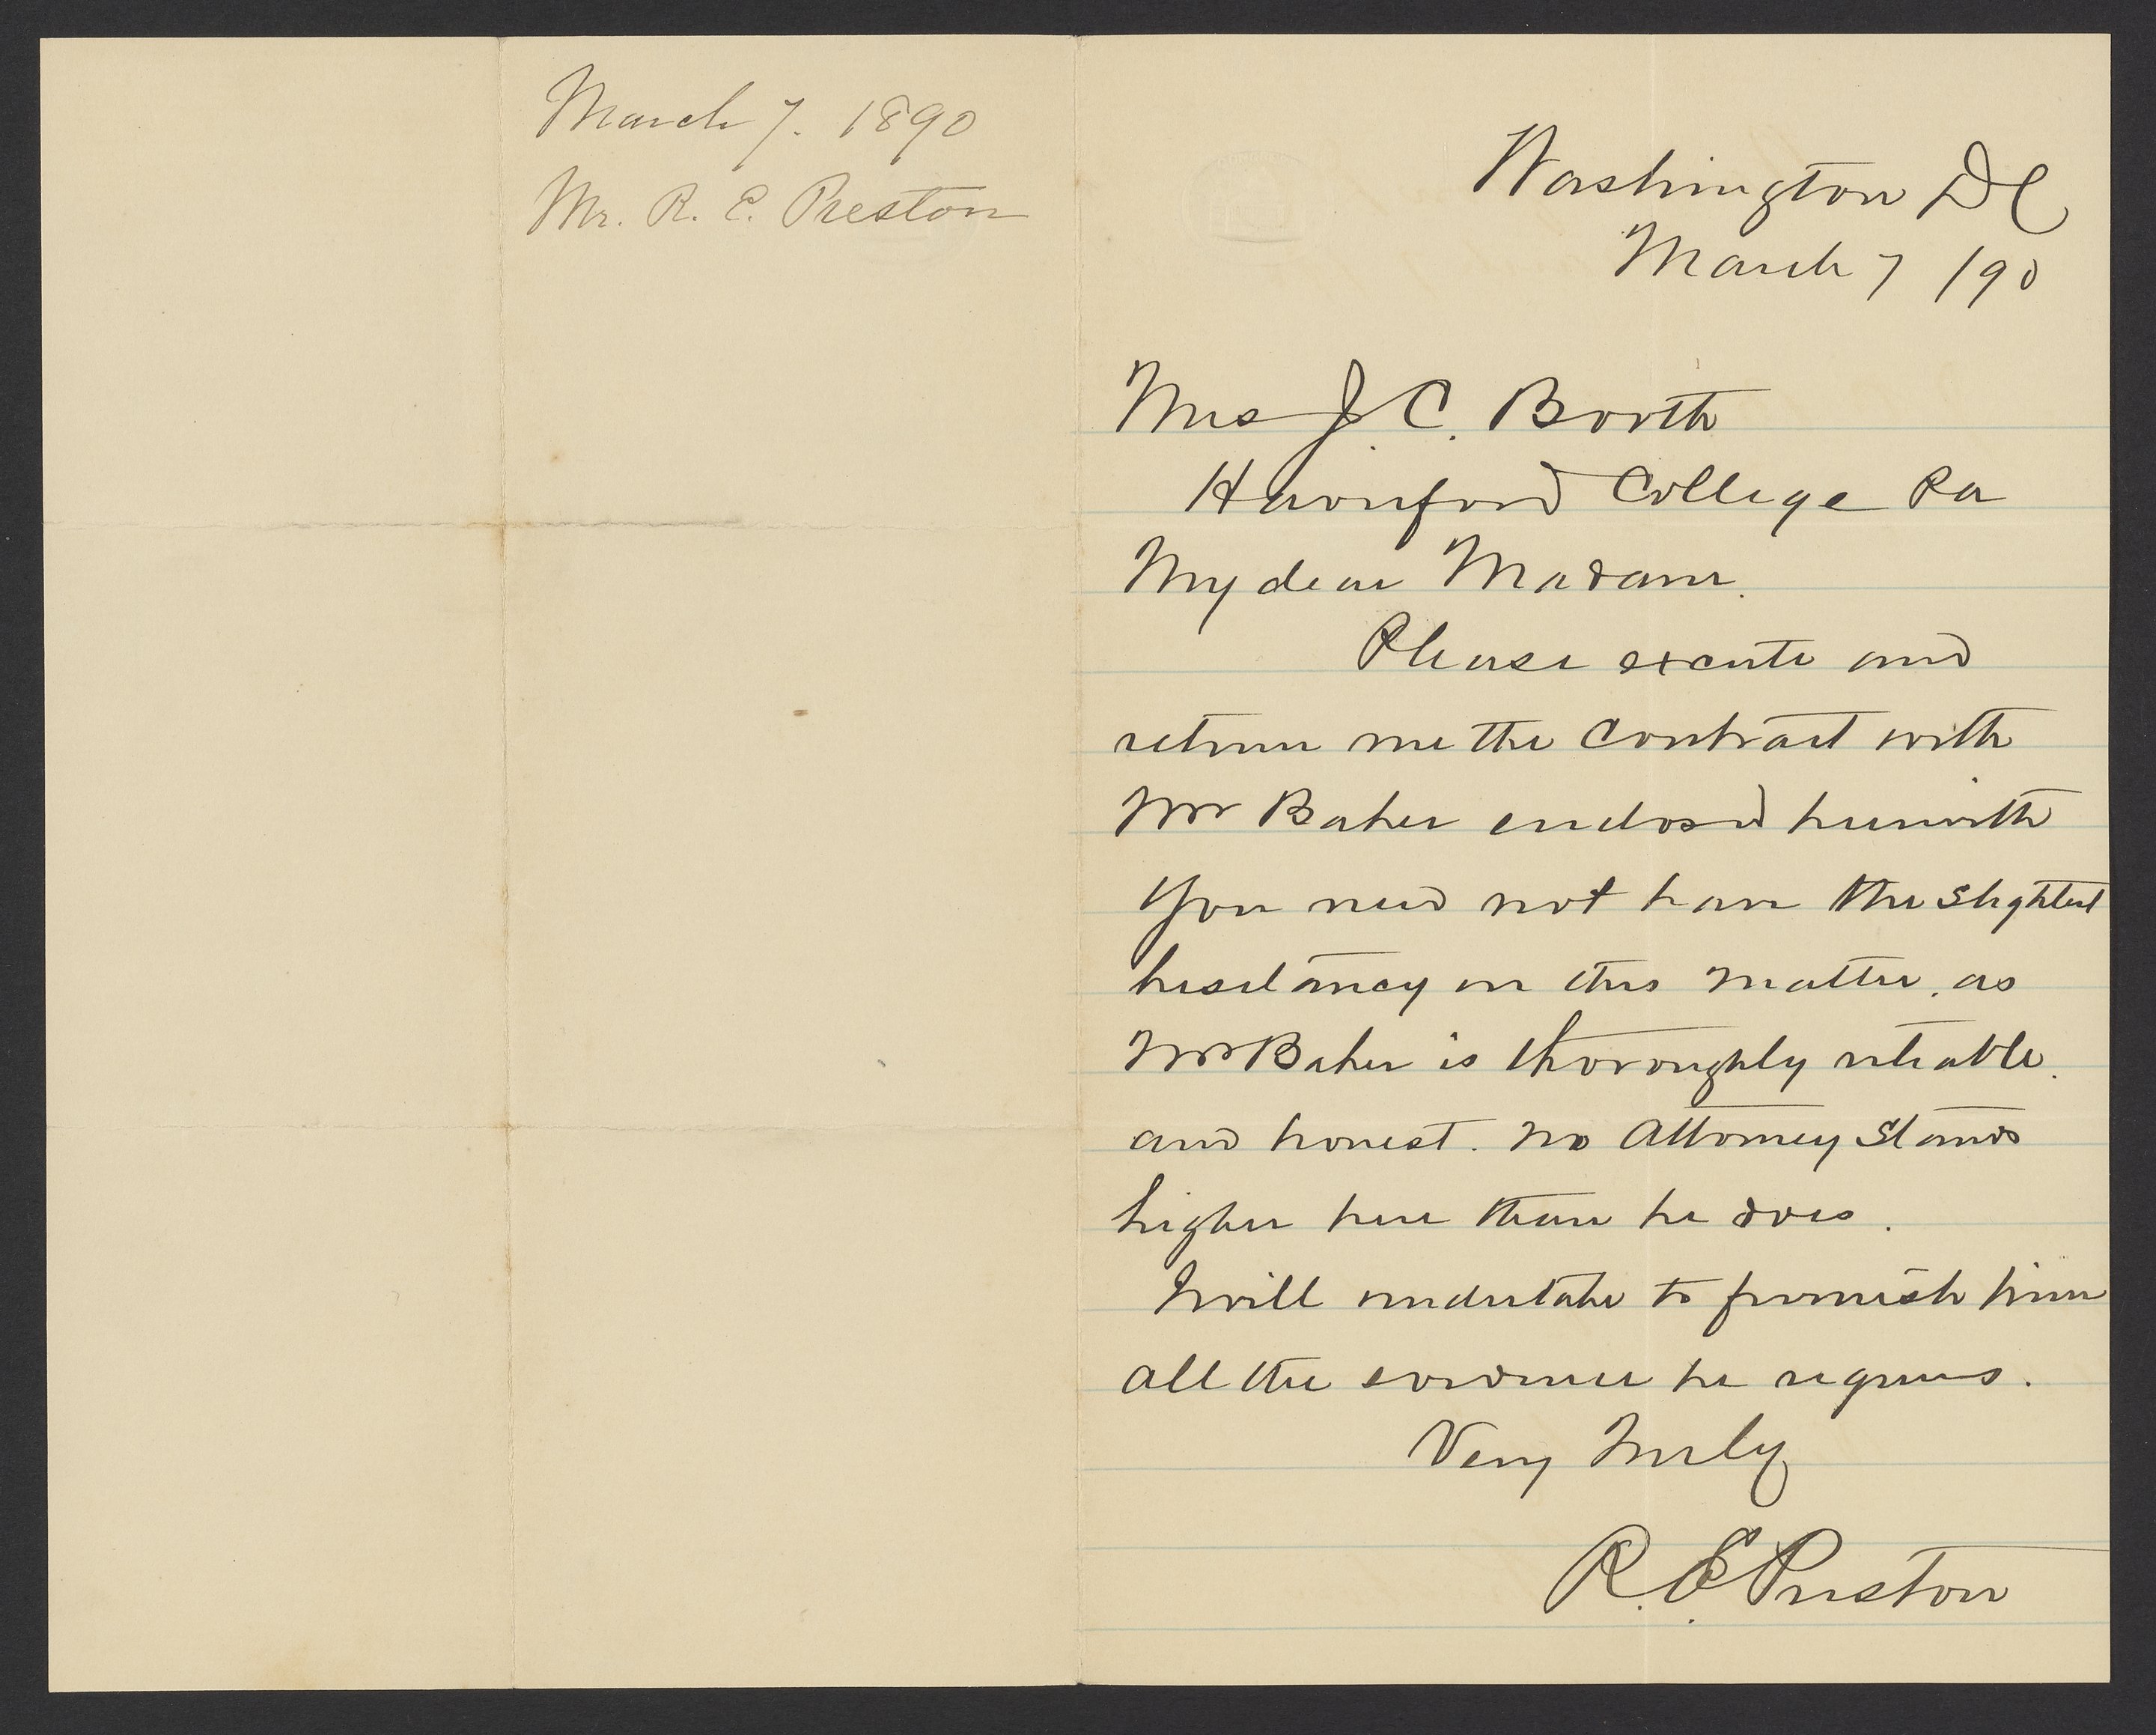 March 7. 1890
Mr. R. E. Preston
Washington DC
March 7 /90
Mrs J. C. Booth
Haverford College Pa
My dear Madam.
Please execute and
return me the Contract with
Mr Baker enclosed herewith
You need not have the slightest
hesitancy in this matter, as
Mr Baker is thoroughly reliable.
and honest. No Attorney Stands
higher here than he does.
I will undertake to furnish him
all the evidence he requires.
Very Truly
R. E. Preston